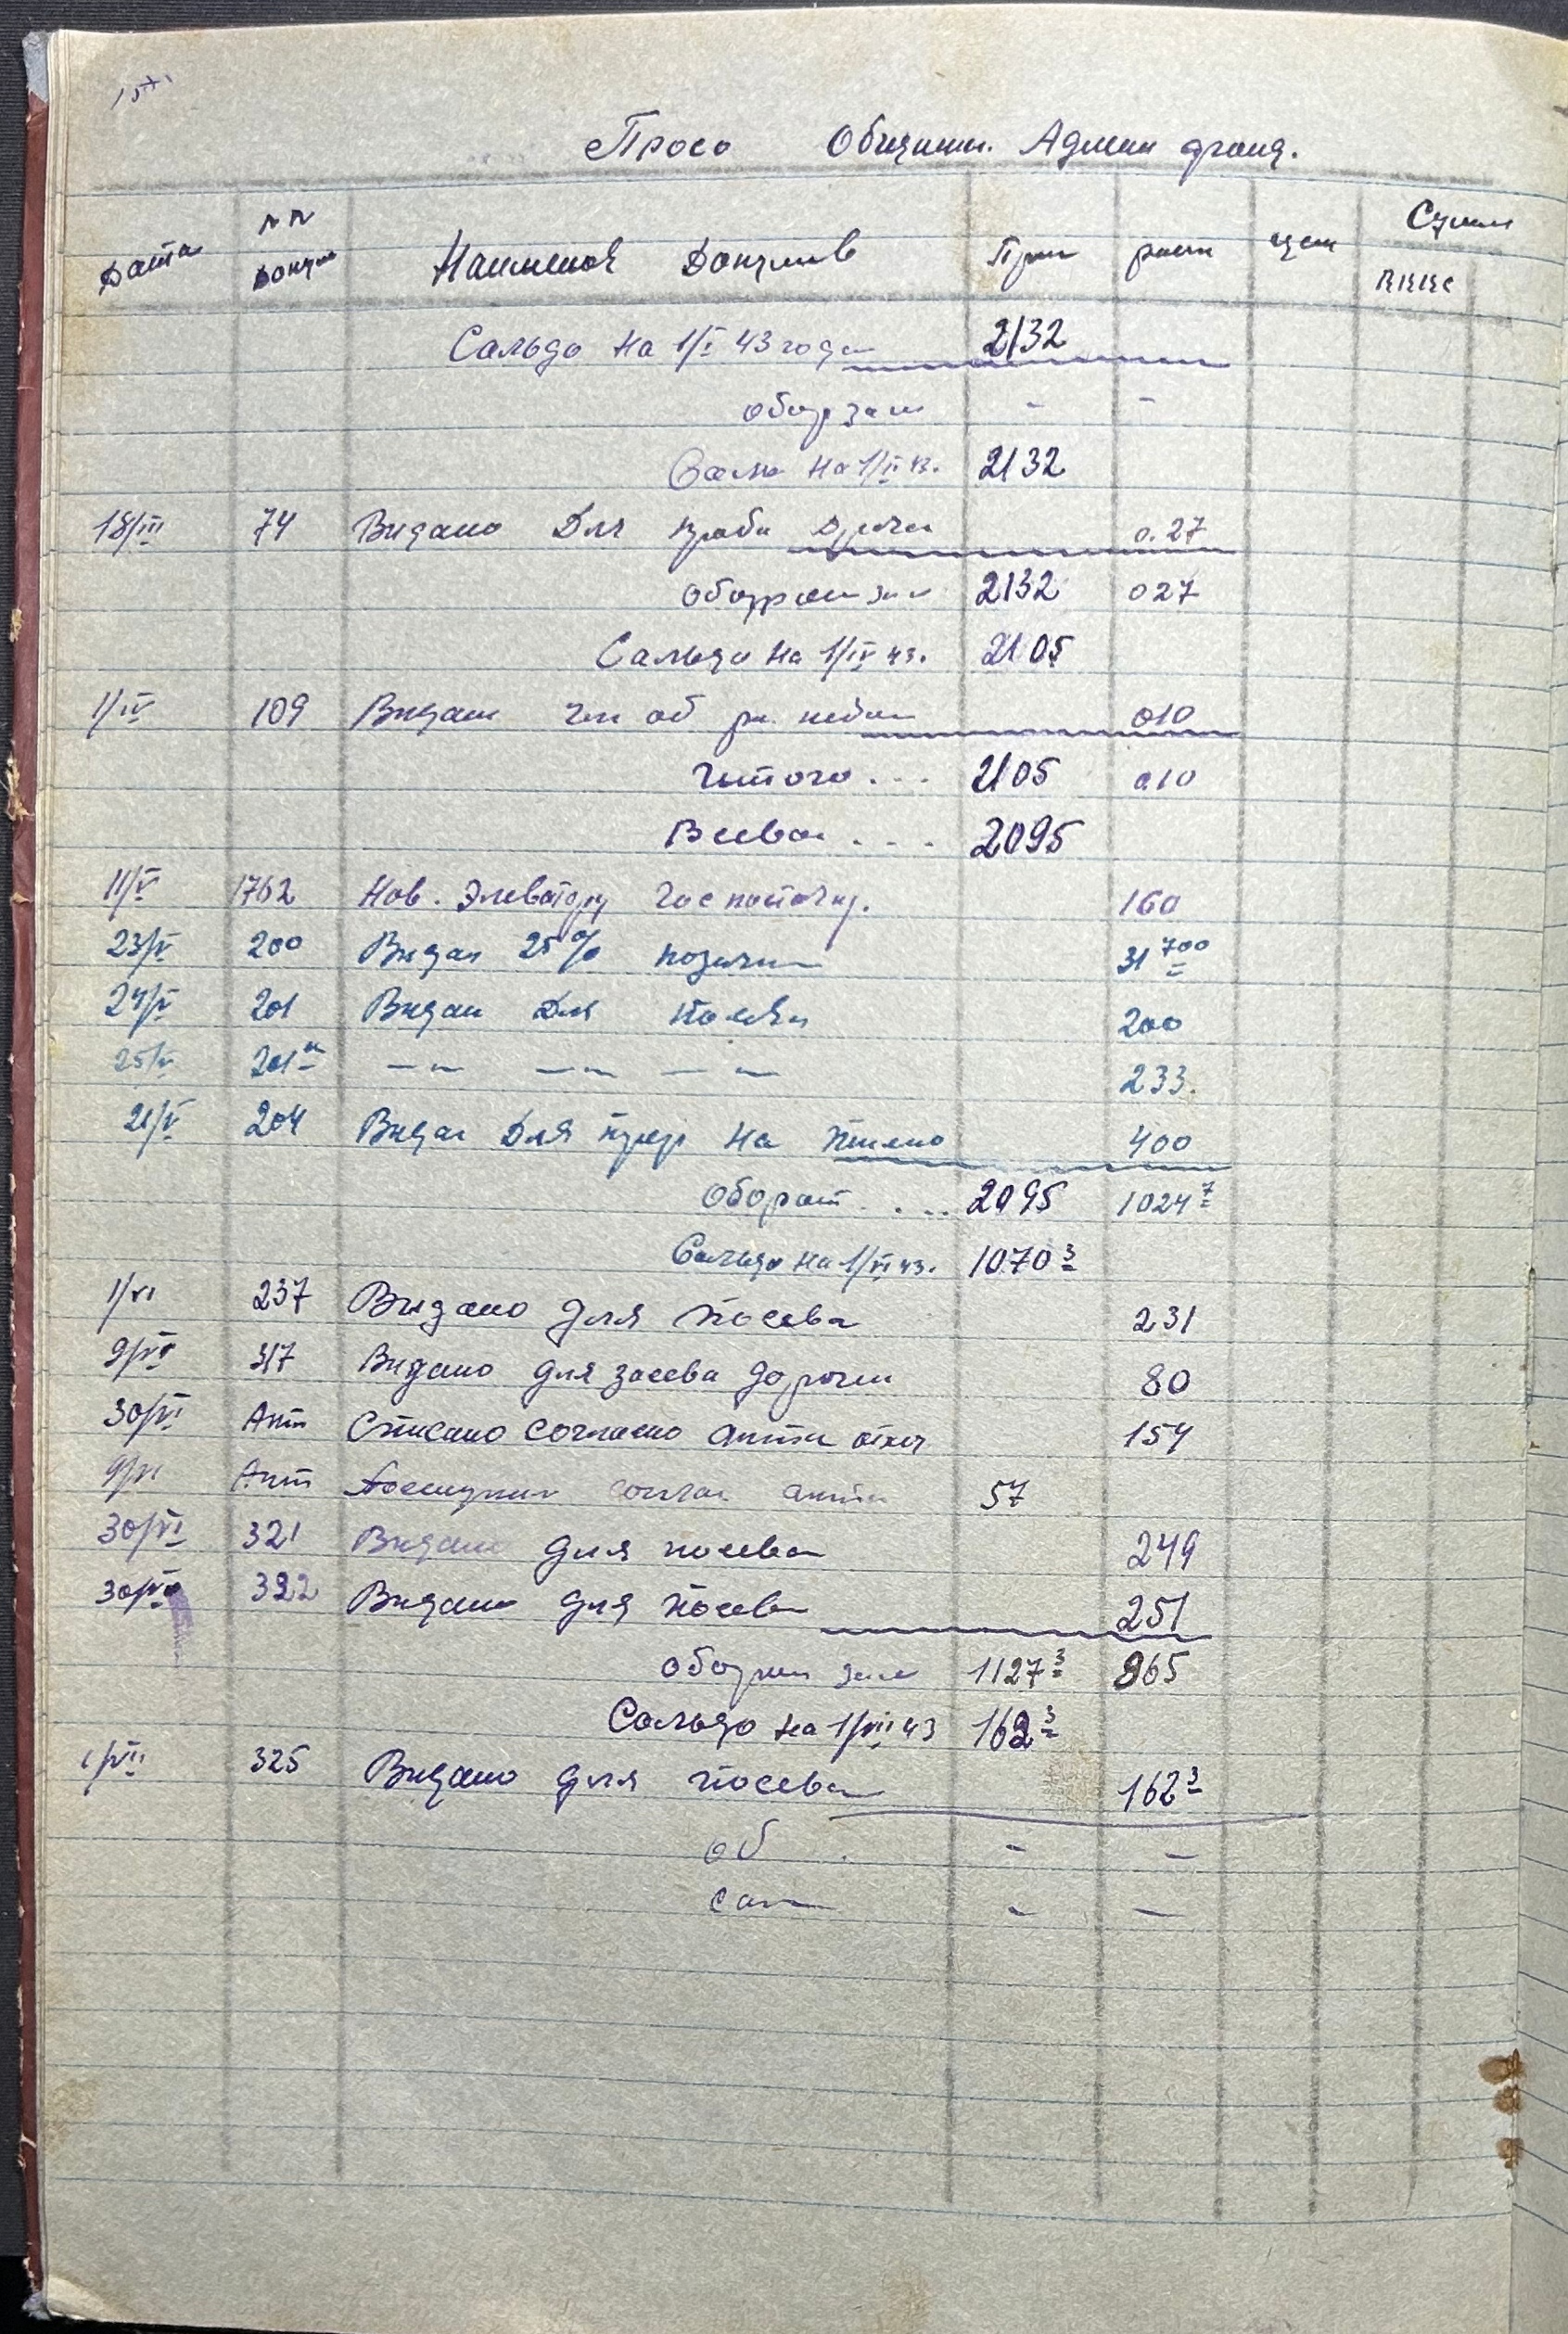 Просо Общинн. Админ фонд.
Дата №№ Докум Наименов Докумнтв Прих расх цен Сумм
Сальдо на 1/I 43 года 2132
оборзат - -
Сальд на 1/II 43. 2132
18/III 74 Видано Для 0.27
2132 027
Сальдо на 1/IV 43. 2105
1/IV 109 Видано 010
Итого ... 2105 010
2095
11/V 1762 Нов. Элеватору госпоставу. 160
23/V 200 Видан 25% позички 31 700
24/V 201 Видан Для посеви 200
25/V 201а —"— —"— —"— 233.
21/V 204 Видан Для пере на пшено 400
Оборот ... 2095 1024 7
Сальдо на 1/VI 43. 1070 3
1/VI 237 Видано для посева 231
9/VI 317 Видано для засева дорочки 80
30/VI Акт Списано согласно акта отход 154
9/VI Акт Поступил соглас акта 57
30/VI 321 Видано для посева 249
30/VI 322 Видано для посева 251
1127 3 965
Сальдо на 1/VII 43 162 3
1/VII 325 Видано для посева 162 3
об - -
сал - -